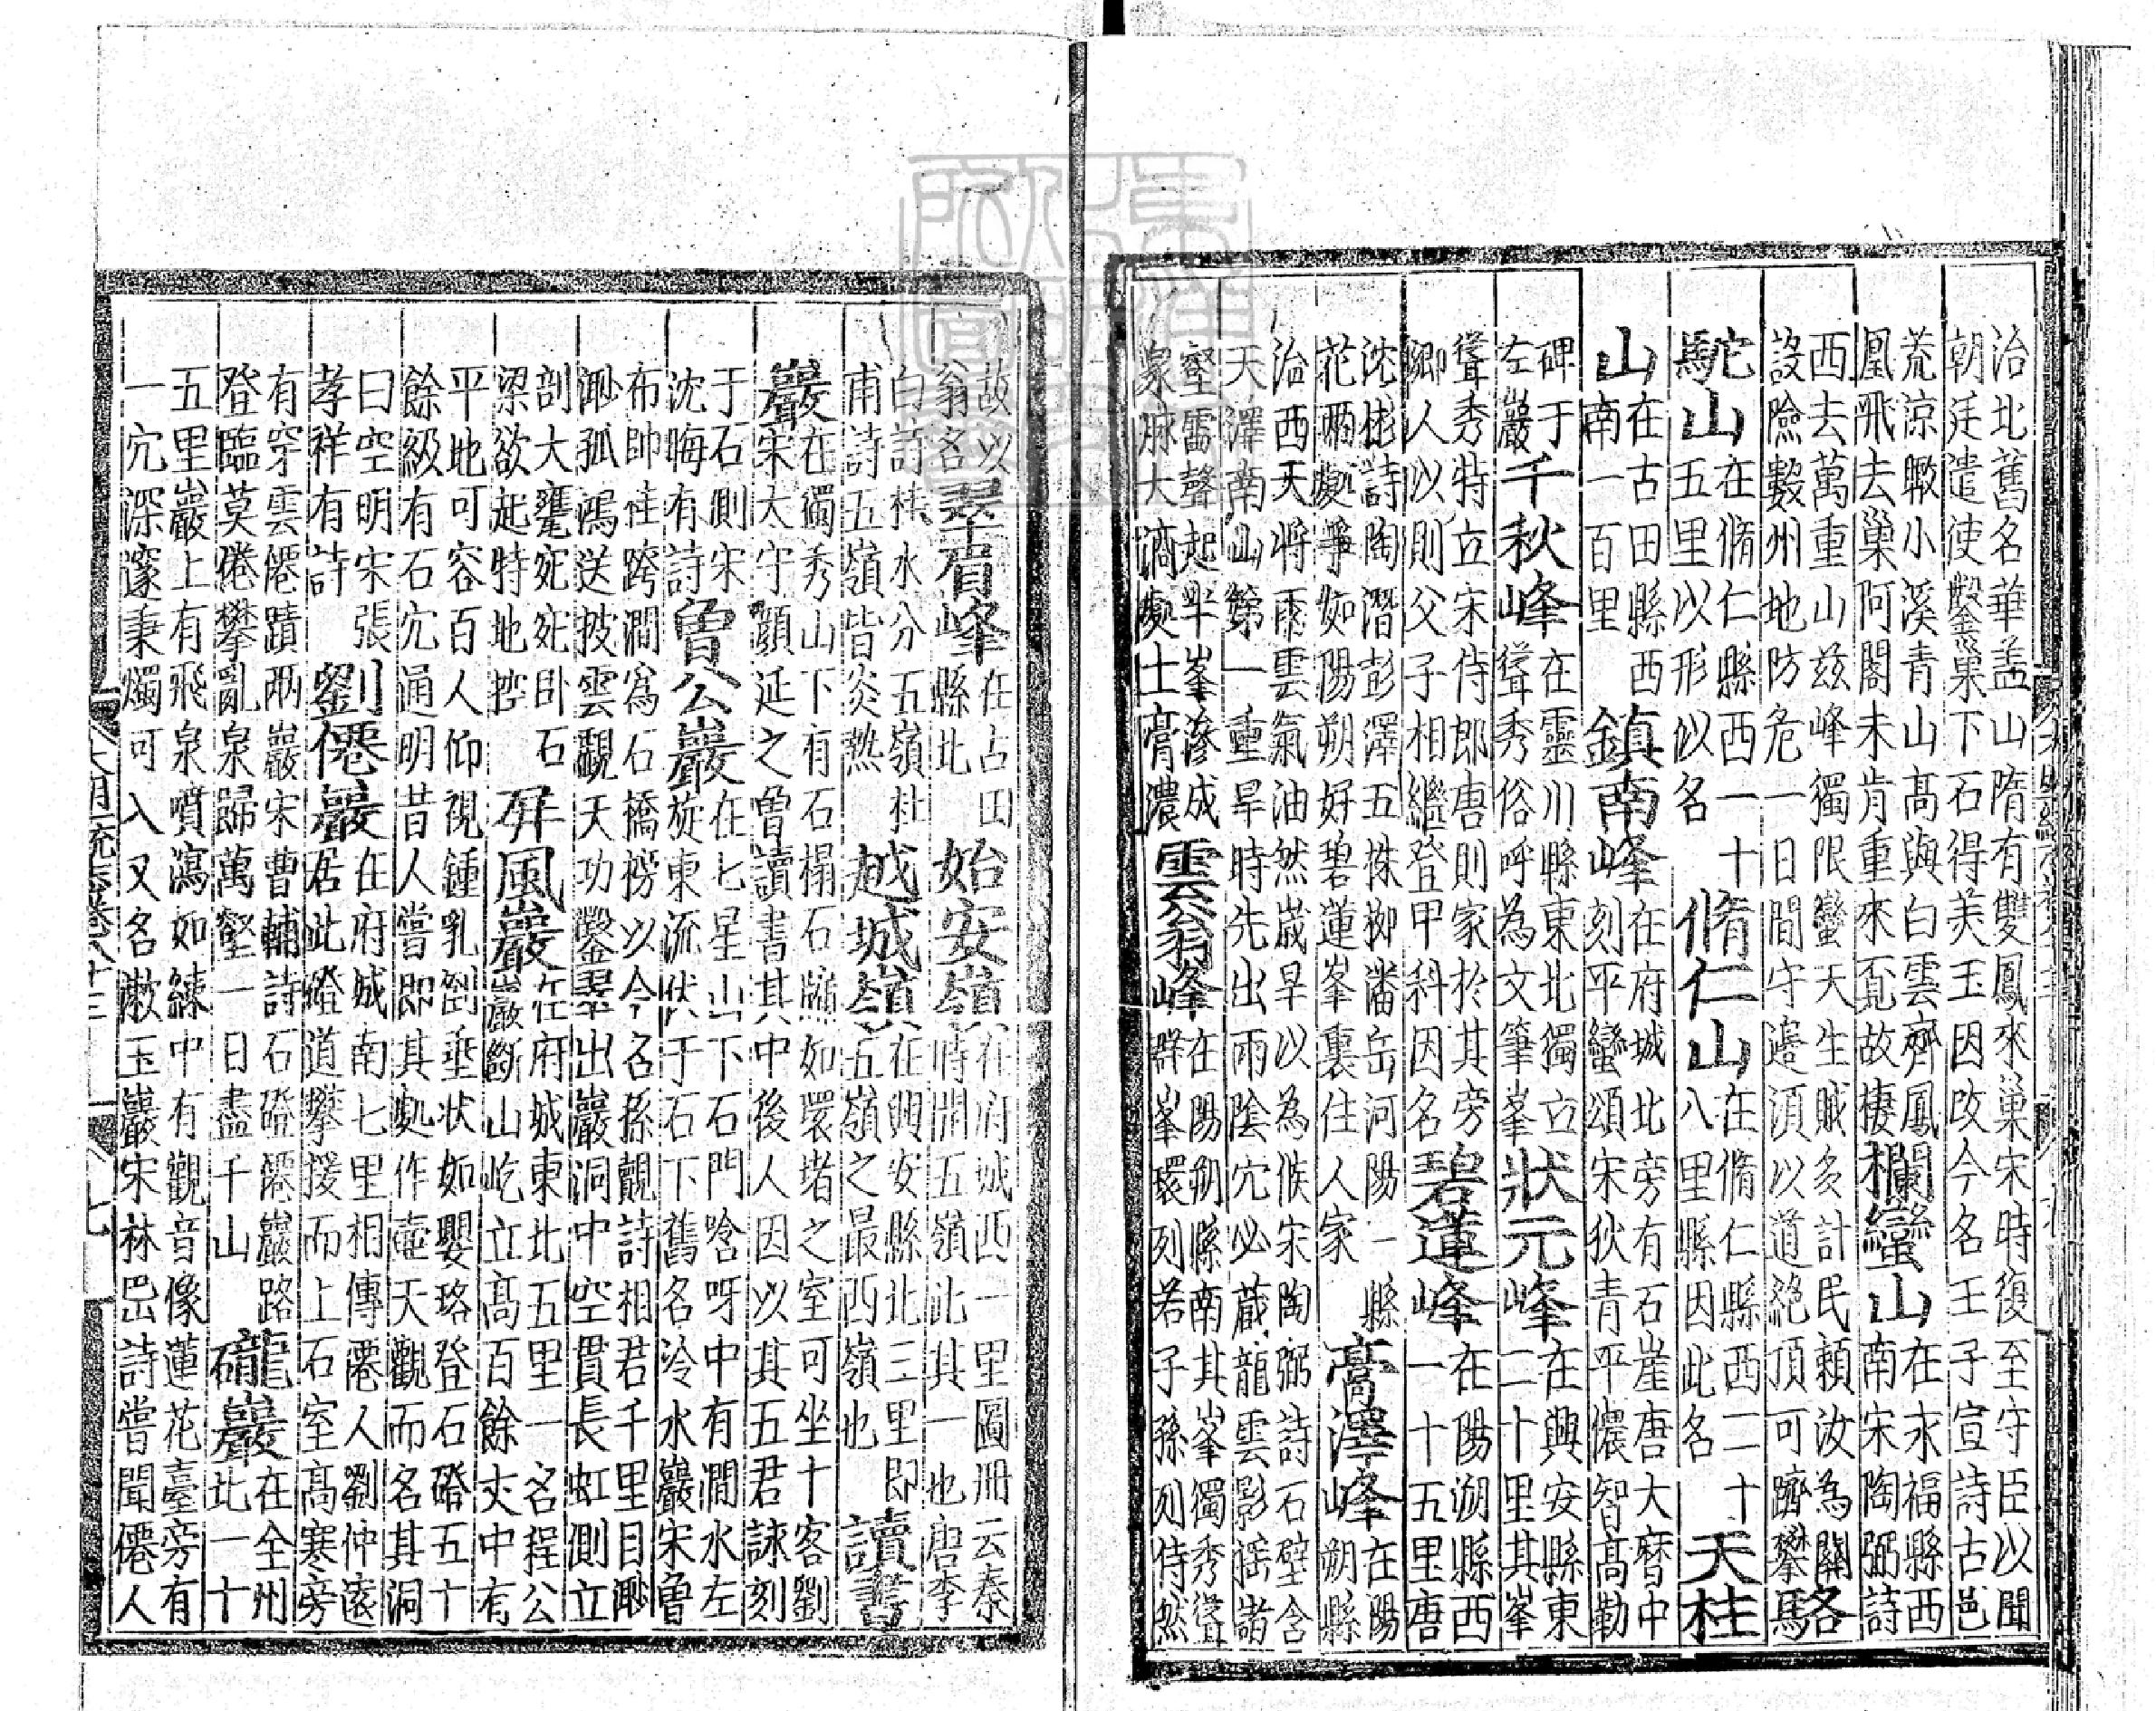 治北舊名華盖山隋有雙鳳來巢宋時復至守臣以聞
朝廷遣使鑿巢下石得美玉因改今名王子宣詩古邑
荒涼瞰小溪青山高與白雲齊鳳
凰飛去巢阿閣未肯重來覓故棲
欄蠻山
在永福縣西
南宋陶弼詩
西去萬重山茲峰獨限蠻天生賊多計民頼汝為關
設險數州地防危一日間守邉湏以道絶頂可躋攀
駱
駞山
在脩仁縣西一十
五里以形似名
脩仁山
在脩仁縣西二十
八里縣因此名
天柱
山
在古田縣西
南一百里
鎮南峰
在府城北旁有石崖唐大曆中
刻平蠻頌宋狄青平儂智高勒
碑于
左巖
千秋峰
在靈川縣東北獨立
聳秀俗呼為文筆峯
狀元峰
在興安縣東
二十里其峯
聳秀特立宋侍郎唐則家於其旁
卿人以則父子相繼登甲科因名
碧蓮峰
在陽朔縣西
一十五里唐
沈彬詩陶潛彭澤五株柳潘岳河陽一縣
花兩處爭如陽朔好碧蓮峯裏住人家
膏澤峰
在陽
朔縣
治西天將雨雲氣油然歲旱以為候宋陶弼詩石壁含
天澤南山第一重旱時先出雨陰穴必藏龍雲影揺諸
壑雷聲起半峯滲成
衆脉大濟處士膏濃
雲翁峰
在陽朔縣南其峯獨秀聳
群峯環列若子孫列侍然
故以
翁名
翠眉峰
在古田
縣北
始安嶺
在府城西一里圖冊云秦
時開五嶺此其一也唐李
白詩桂水分五嶺杜
甫詩五嶺皆炎熱
越城嶺
在興安縣北三里即
五嶺之最西嶺也
讀書
巖
在獨秀山下有石榻石牖如環堵之室可坐十客劉
宋太守顏延之曽讀書其中後人因以其五君詠刻
于石側宋
沈晦有詩
曾公巖
在七星山下石門唅呀中有澗水左
旋東流伏于石下舊名冷水巖宋曾
布帥桂跨澗爲石橋榜以今名孫覿詩相君千里目渺
渺孤鴻送披雲覩天功鑿翠出巖洞中空貫長虹側立
剖大甕宛宛卧石
梁欲起特地控
屏風巖
在府城東北五里一名程公
巖斷山屹立高百餘丈中有
平地可容百人仰視鍾乳倒垂状如嬰珞登石磴五十
餘級有石穴通明昔人嘗即其處作壺天觀而名其洞
曰空明宋張
孝祥有詩
劉僊巖
在府城南七里相傳僊人劉仲逺
居此磴道攀援而上石室高寒旁
有穿雲僊蹟兩巖宋曹輔詩石磴僊巖路
登臨莫倦攀亂泉歸萬壑一日盡千山
礲巖
在全州
北一十
五里巖上有飛泉噴瀉如練中有觀音像蓮花臺旁有
一穴深邃秉燭可入又名漱玉巖宋林岊詩嘗聞僊人
大明一統志卷八十三
七